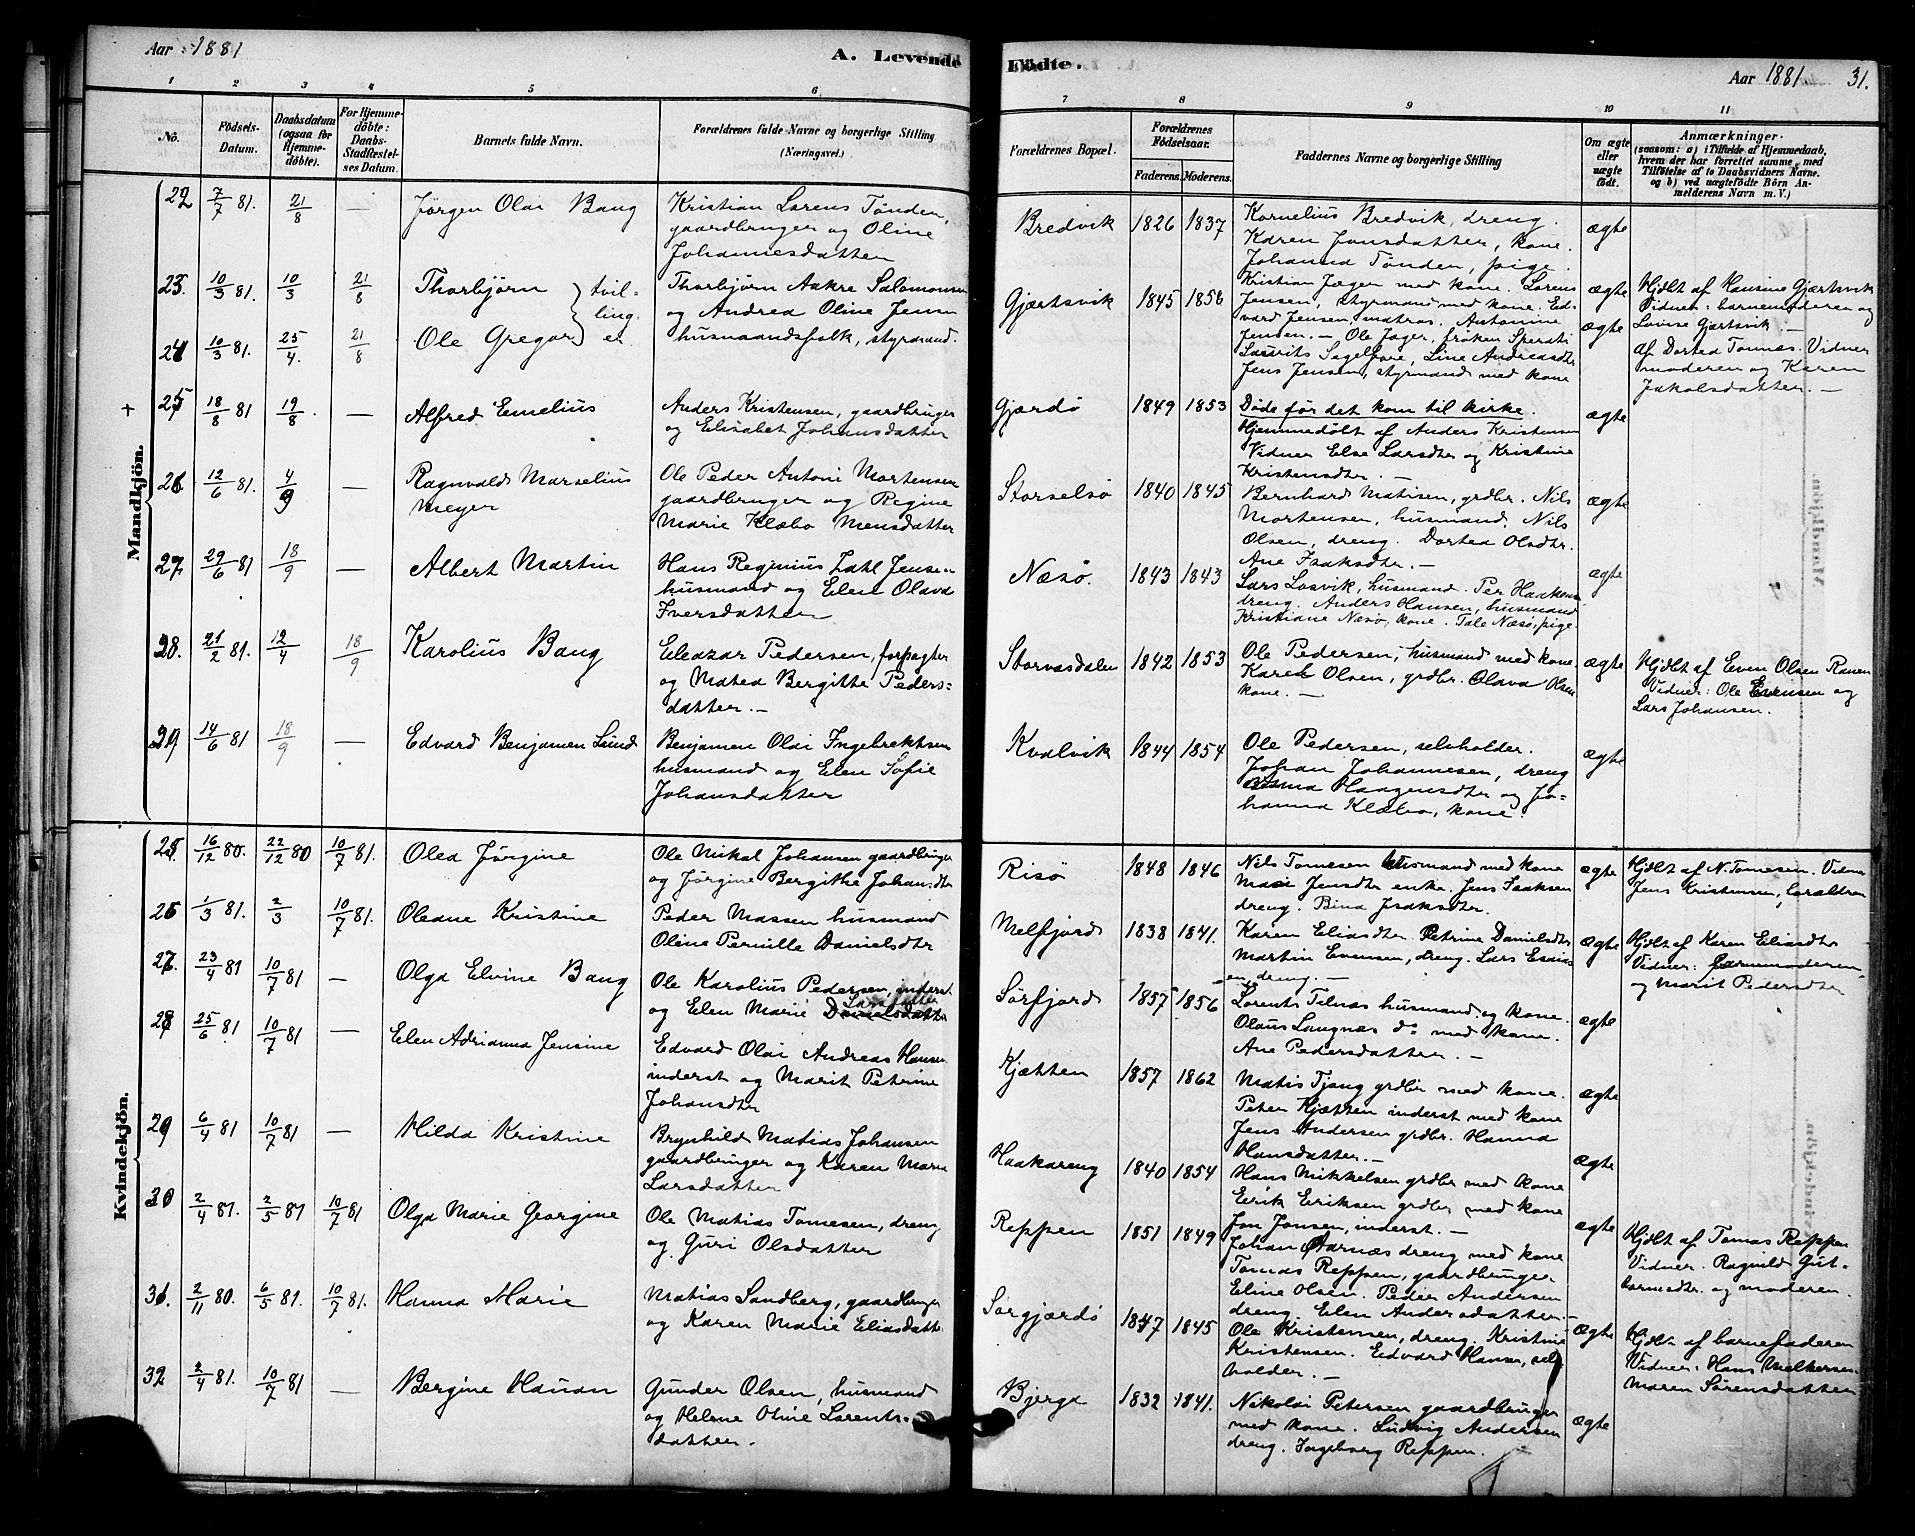 Aar 1881
A. Levende
Födte.
Aar 1881.
31.
1 2 3 4 5 6
7 8 9 10 11
No.
Födsels-
Datum.
Daabsdatum
(ogsaa for
Hjemme-
döbte).
For Hjemme-
döbte:
Daabs-
Stadfæstel-
ses Datum.
Barnets fulde Navn.
Forældrenes fulde Navne og borgerlige Stilling
(Næringsvei.)
Forældrenes Bopæl.
Forældrenes
Födselsaar.
Faderens. Moderens.
Faddernes Navne og borgerlige Stilling
Om ægte
eller
uægte
födt.
Anmærkninger.
(saasom: a) i Tilfælde af Hjemmedaab,
hvem der har forrettet samme, med
Tilföielse af to Daabsvidners Navne.
og b) ved uægtefödte Börn An-
melderens Navn m.V.)
Mandkjön.
22 7/7 81. 21/8 — Jørgen Olai Bang
Kristian Lorens Tønden,
gaardbruger og Oline
Johannesdatter
Bredvik 1826 1837
Kornelius Bredvik, dreng.
Karen Jonsdatter, kone.
Johanna Tønden, pige.
ægte
23. 10/3 81. 10/3 21/8 Thorbjørn } tvil-
ling.
Thorbjørn Aakre Salomonsen
og Andrea Oline Jensen
husmandsfolk, styrmand.
24 10/3 81. 25/4. 21/8 Ole Gregar } er
Gjærtsvik 1845 1856
Kristian Jæger med kone. Lorens
Jensen, Styrmand med kone. Ed-
vard Jensen matros. Antonine
Jensen. — Ole Jæger, frøken Sperati
Laurits Segelfore, Line Andreasdtr
Jens Jensen, styrmand med kone
ægte
ægte
Hjdbt af Hansine Gjærtsvik
Vidner: barnemoderen og
Lovise Gjærtsvik. —
af Dortea Tomas. Vidner
moderen og Karen
Jakobsdatter. —
+ 25 18/8 81 19/8. — Alfred Emelius
Anders Kristensen, gaardbruger
og Elisabet Johansdatter
Gjærdø 1849 1853
Døde før det kom til kirke.
Hjemmedøbt af Anders Kristensen
Vidner Else Larsdtr og Kristine
Kristensdtr. —
ægte
26 12/6 81. 4/9 — Ragnvald Marselius
Meyer
Ole Peder Antoni Mortensen
gaardbruger og Regine
Marie Klæbo Mensdatter
Storselsø 1840 1845
Bernhard Matisen, grdbr. Nils
Mortensen, husmand. Nils
Olsen, dreng. Dortea Olsdtr.
Ane Isaksdtr. —
ægte
27. 29/6 81 18/9 — Albert Martin
Hans Reginius Zahl Jensen
husmand og Elen Olava
Iversdatter
Næsø. 1843 1843
Lars Losvik, husmand. Per Haakons
dreng. Anders Hansen, husmand
Kristiane Næsø, kone. Tale Næsø, pige
ægte
28. 21/2 81. 12/4 18/9 Karolius Bang
Eleazar Pedersen, forpagter
og Matea Bergitte Peders-
datter. —
Storvasdalen 1842 1853
Ole Pedersen, husmand med kone.
Karel Olsen, grdbr. Olava Olsen
kone. —
ægte
Hjdbt af Even Olsen Ranen
Vidner: Ole Evensen og
Lars Johansen.
29 14/6 81 18/9 — Edvard Benjamen Lund
Benjamen Olai Ingebrektsen
husmand og Elen Sofie
Johansdatter
Kvalvik 1844 1854
Ole Pedersen, selvholder.
Johan Johannesen, dreng
Anna Haagensdtr og Jo-
hanna Klæbo, kone.
ægte
Kvindekjön.
25. 16/12 80. 22/12 80 10/7 81. Olea Jørgine
Ole Nikal Johansen gaardbruger
og Jørgine Bergithe Johansdtr
Risø 1848 1846
Nils Tomesen husmand med kone
Mari Jensdtr enke. Jens Isaksen
dreng. Bina Isaksdtr.
ægte
Hjdbt af N. Tomesen. Vidner
Jens Kristensen, foraldren
26 1/3 81. 2/3 10/7 81. Oleane Kristine
Peder Massen husmand
Oline Pernille Danielsdtr
Melfjord 1838 1841.
Karen Eliasdtr. Petrine Danielsdtr
Martin Evensen, dreng. Lars Esaias
en, dreng. —
ægte
Hjdbt af Karen Eliasdtr
Vidner: barnemoderen
og Marit Pedersdtr
27. 23/4 81 10/7 81 — Olga Elvine Bang
Ole Karolius Pedersen, inderst
og Elen Marie Danielsdatter
Sørfjord 1857 1856
Lorents Telnæs husmand og kone.
Olaus Langnæs do med kone.
Ane Pedersdatter. —
ægte
28 25/6 81 10/7 81 — Elen Adrianna Jensine
Edvard Olai Andreas Hansen
inderst og Marit Petrine
Johansdtr
Kjætten 1857 1862
Matis Tjong grdbr med kone.
Peter Kjætten inderst med kone
Jens Andersen grdbr. Hanna
Hansdatter. —
ægte
29 6/4 81 10/7 81 — Hilda Kristine
Brynhild Matias Johansen
gaardbruger og Karen Maria
Larsdatter
Haakareng 1840 1854
Hans Mikkelsen grdbr med kone
Eirik Eriksen grdbr med kone
Jon Jonsen, inderst. —
ægte
30 2/4 81. 2/5 81 10/7 81 Olga Marie Georgine
Ole Matias Tomesen, dreng
og Guri Olsdatter
Reppen 1851 1849
Johan Aarnæs dreng med kone
Tomas Reppen, gaardbruger
Eline Olsen. Peder Andersen
dreng. Elen Andersdatter. —
ægte
Hjdbt af Tomas Reppen
Vidner. Ragnild Gut-
bormsdtr. og moderen.
31. 2/11 80. 6/5 81. 10/7 81. Hanna Marie
Matias Sandberg, gaardbruger
og Karen Marie Eliasdatter
Sørgjærdø 1847 1845
Ole Kristensen, dreng. Kristine
Kristensen. Edvard Hansen, selv
holder. —
ægte
Hjdbt af barnefaderen
Vidner: Hans Melkersen
Maren Sørensdatter
32 2/4 81. 10/7 81 — Bergine Hauan
Gunder Olsen, husmand
og Helene Oline Lorents-
datter.
Bjerga 1832 1841.
Nikolai Petersen gaardbruger
med kone. Ludvig Andersen
dreng. Ingeborg Reppen.
ægte